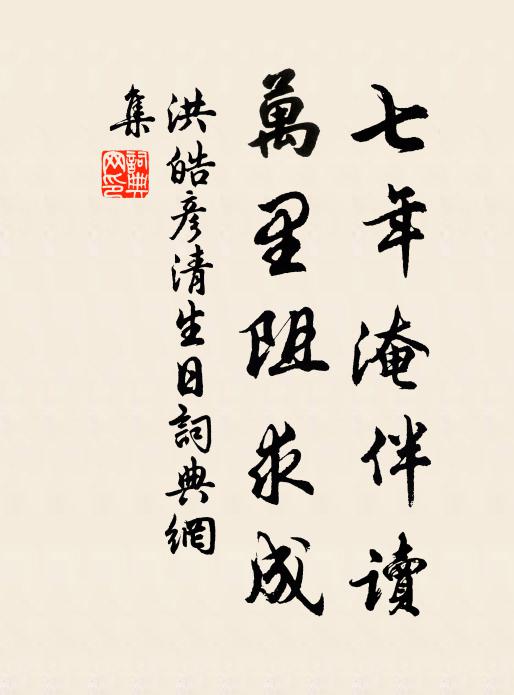 七年淹伴讀
萬里阻求成
洪皓彥清生日詞典網
集
詞典网印